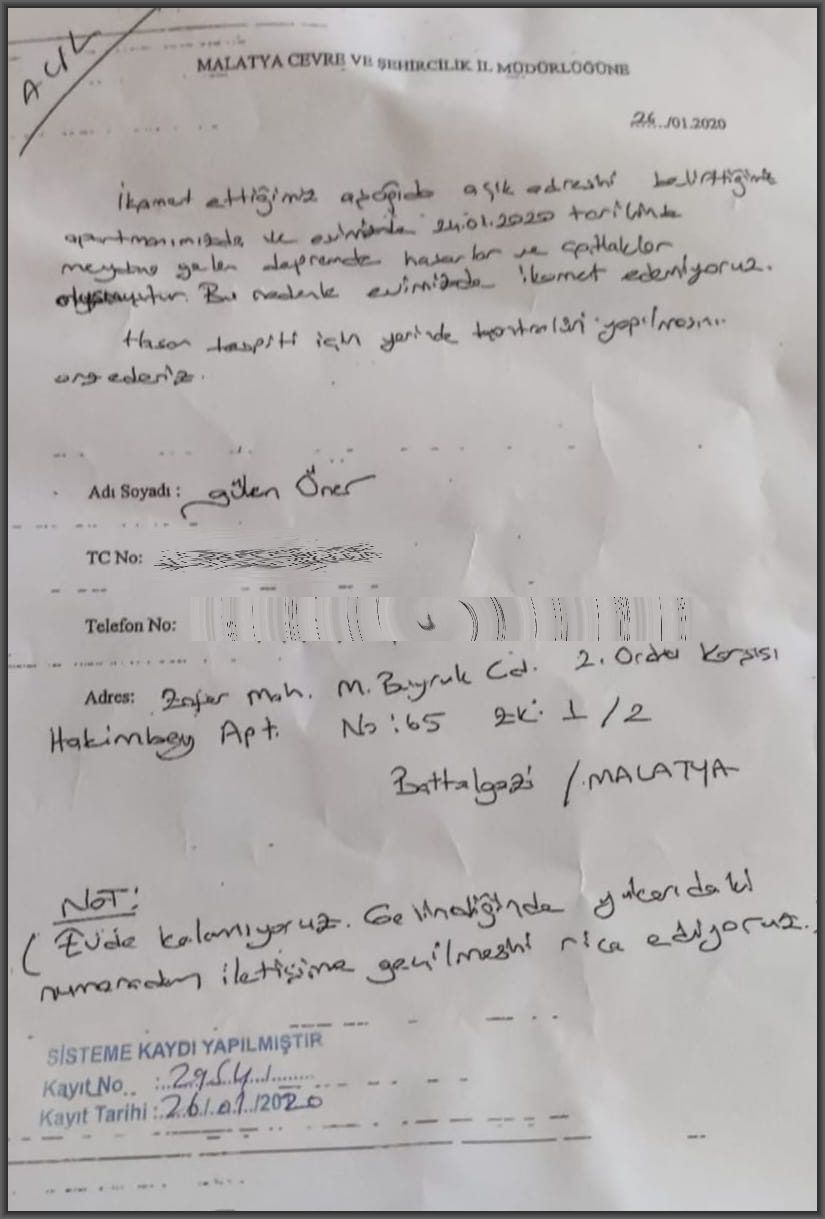 ACİL
MALATYA CEVRE VE ŞEHİRCİLİK İL MÜDÜRLÜĞÜNE
26../01.2020
İkamet ettiğimiz aşağıda açık adresini belirttiğimiz
apartmanımızda ve evimizde 24.01.2020 tarihinde
meydana gelen depremde hasarlar ve çatlaklar
oluşmuştur. Bu nedenle evimizde ikamet edemiyoruz.
Hasar tespiti için yerinde kontrolleri yapılmasını
arz ederiz.
Adı Soyadı : Gülen Öner
TC No:
Telefon No:
Adres: Zafer Mah. M. Buyruk Cd. 2. Ordu Karşısı
Hakimbey Apt. No:65 2K: 1/2
Battalgazi /MALATYA
NOT:
( Evde kalamıyoruz. Gelindiğinde yukarıdaki
numaradan iletişime geçilmesini rica ediyoruz.
SİSTEME KAYDI YAPILMIŞTIR
Kayıt No :..2954../........
Kayıt Tarihi :.26/.01./2020